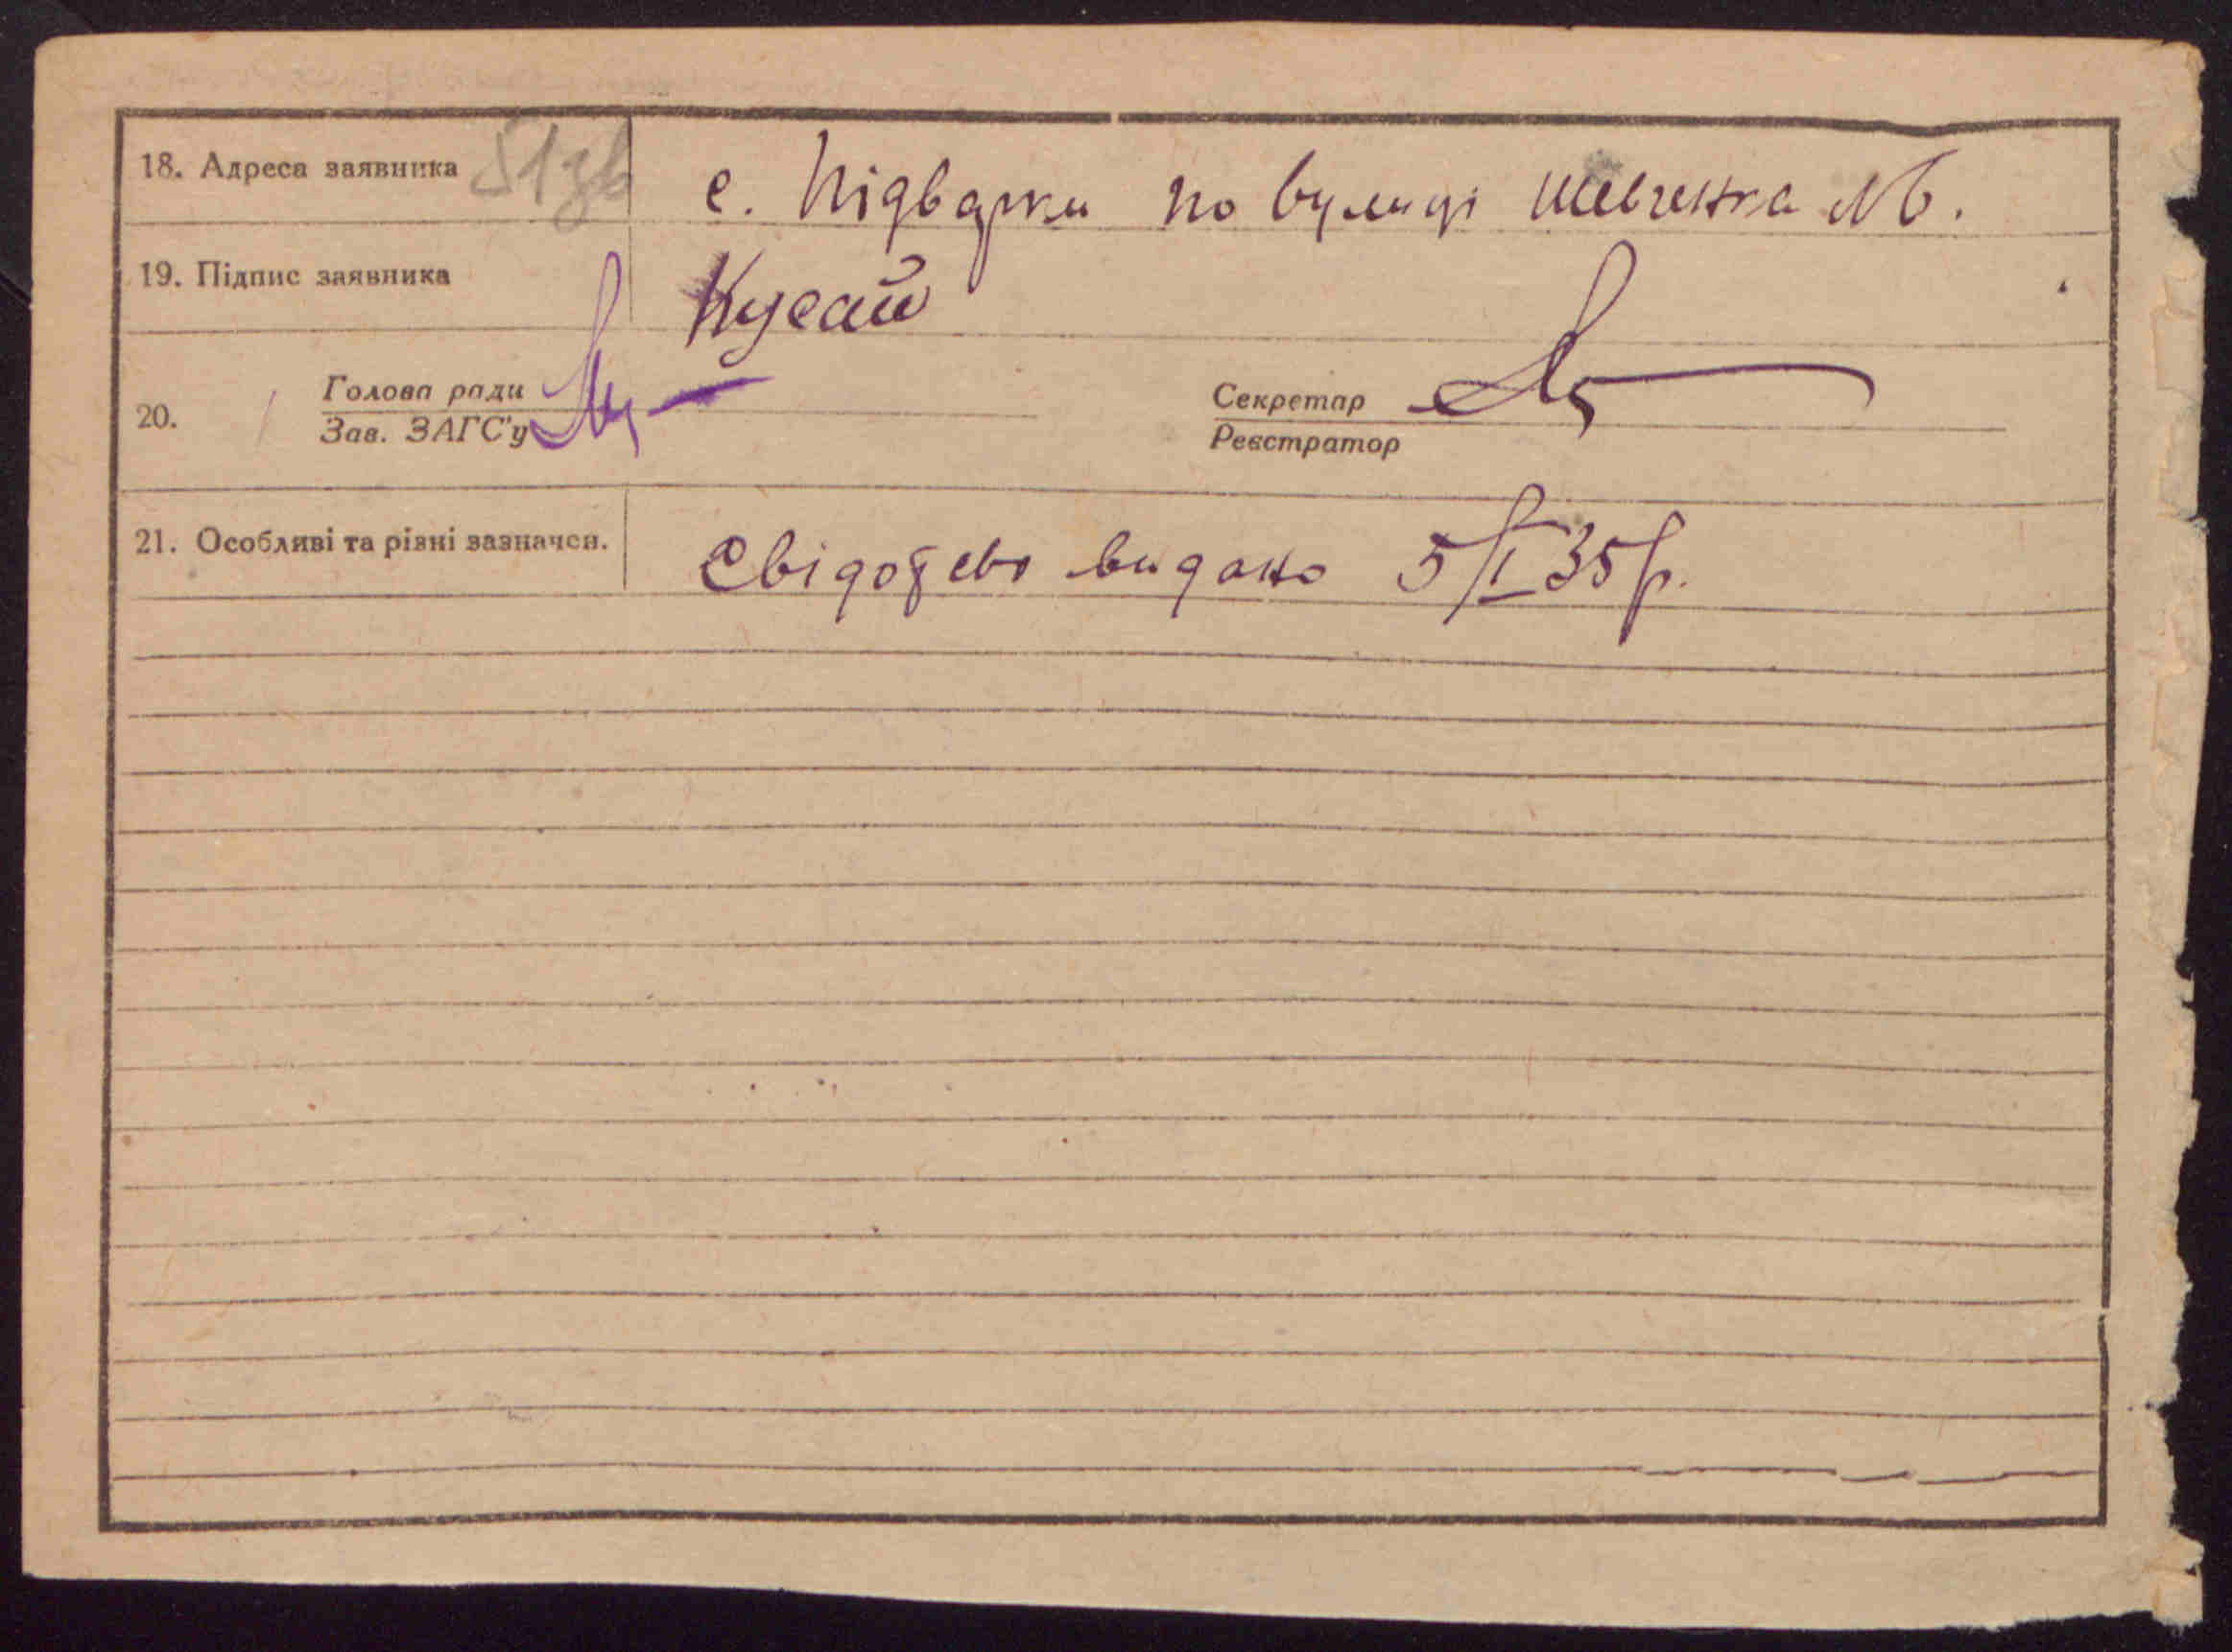 18. Адреса заявника 51зв
с. Підварки по вулиці Шевченка № 6.
19. Підпис заявника
Кусай
20. Голова ради
Зав. ЗАГС'у
Секретар
Реєстратор
21. Особливі та різні зазначен.
Свідоцтво видано 5/I 35 р.